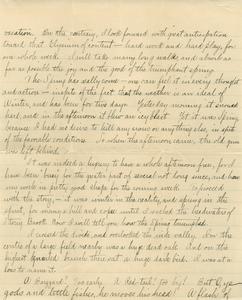 vacation. On the contrary, I look forward with great anticipation
toward that Elysium of content — hard work and hard play, for
one whole week. I will take many long walks and absorb as
far as possible the joy and the good of the triumphant spring.
The Spring has really come — one can feel it in every thought
and action — in spite of the fact that the weather is an ideal of
Winter, and has been for two days. Yesterday morning it snowed
hard, and in the afternoon it blew an icy blast. Yet it was Spring
because I had no desire to kill any crows or anything else, in spite
of the favorable conditions. So when the afternoon came, the old gun
was left behind.
It was indeed a luxury to have a whole afternoon free, for I
have been busy for the greater part of several not long since, and have
my work in pretty good shape for the coming week. I proceed
with the story — it was winter in the reality, and spring in the
spirit, for many a hill had
Now I will tell you how the Spring triumphed.
I crossed the divide, and overlooked the wide valley. On the
centre of a large field nearby was a huge dark oak. And on the
highest branch there sat a huge dark bird. I was at a
loss to name it.
A Buzzard? Too early. A Red-tail? Too big! But Oye
gods and little fishes, he moves his head! A flash of